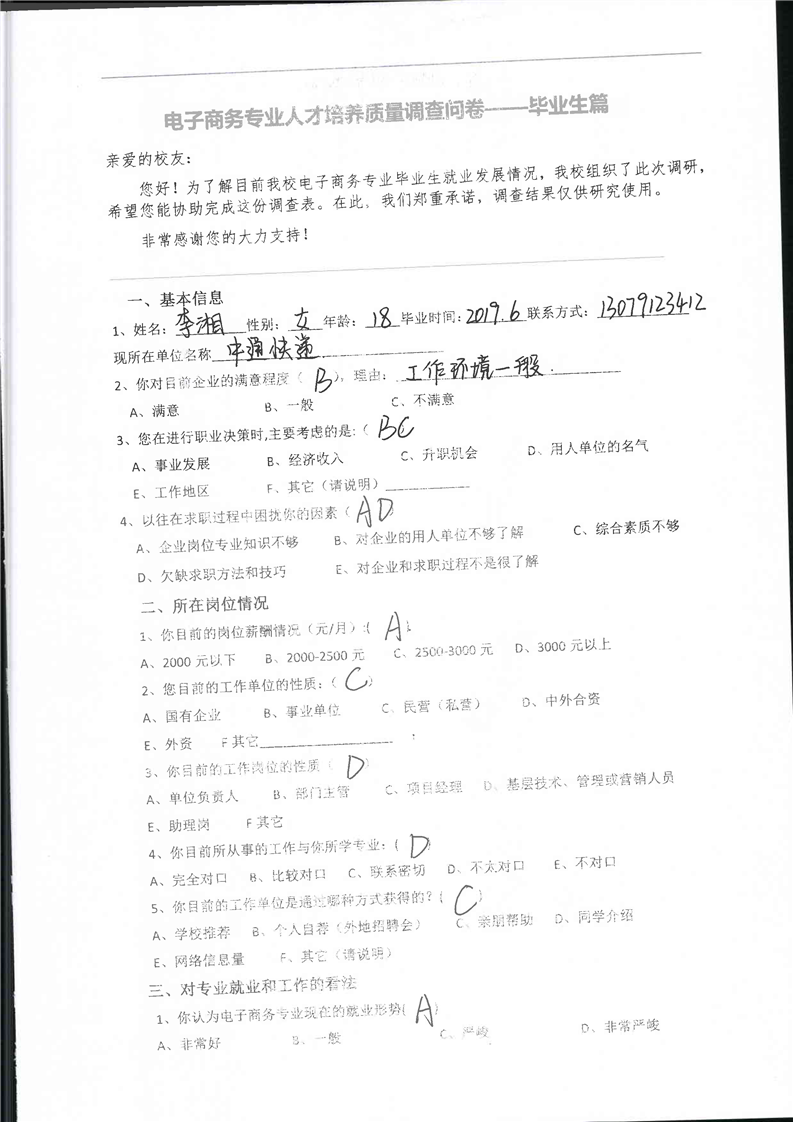 电子商务专业人才培养质量调查问卷——毕业生篇
亲爱的校友：
您好！为了解目前我校电子商务专业毕业生就业发展情况，我校组织了此次调研，
希望您能协助完成这份调查表。在此，我们郑重承诺，调查结果仅供研究使用。
非常感谢您的大力支持！
一、基本信息
1、姓名：李湘 性别：女 年龄：18 毕业时间：2019.6 联系方式：13079123412
现所在单位名称 中通快递
2、你对目前企业的满意程度（ B ），理由：工作环境一般.
A、满意 B、一般 C、不满意
3、您在进行职业决策时,主要考虑的是:（ BC
A、事业发展 B、经济收入 C、升职机会 D、用人单位的名气
E、工作地区 F、其它（请说明）____________
4、以往在求职过程中困扰你的因素（ AD ）
A、企业岗位专业知识不够 B、对企业的用人单位不够了解 C、综合素质不够
D、欠缺求职方法和技巧 E、对企业和求职过程不是很了解
二、所在岗位情况
1、你目前的岗位薪酬情况（元/月）:( A )
A、2000 元以下 B、2000-2500 元 C、2500-3000 元 D、3000 元以上
2、您目前的工作单位的性质：( C )
A、国有企业 B、事业单位 C、民营（私营） D、中外合资
E、外资 F 其它____________________
3、你目前的工作岗位的性质（ D ）
A、单位负责人 B、部门主管 C、项目经理 D、基层技术、管理或营销人员
E、助理岗 F 其它
4、你目前所从事的工作与你所学专业：( D )
A、完全对口 B、比较对口 C、联系密切 D、不太对口 E、不对口
5、你目前的工作单位是通过哪种方式获得的？( C )
A、学校推荐 B、个人自荐（外地招聘会） C、亲朋帮助 D、同学介绍
E、网络信息量 F、其它（请说明）
三、对专业就业和工作的看法
1、你认为电子商务专业现在的就业形势( A )
A、非常好 B、一般 C、严峻 D、非常严峻